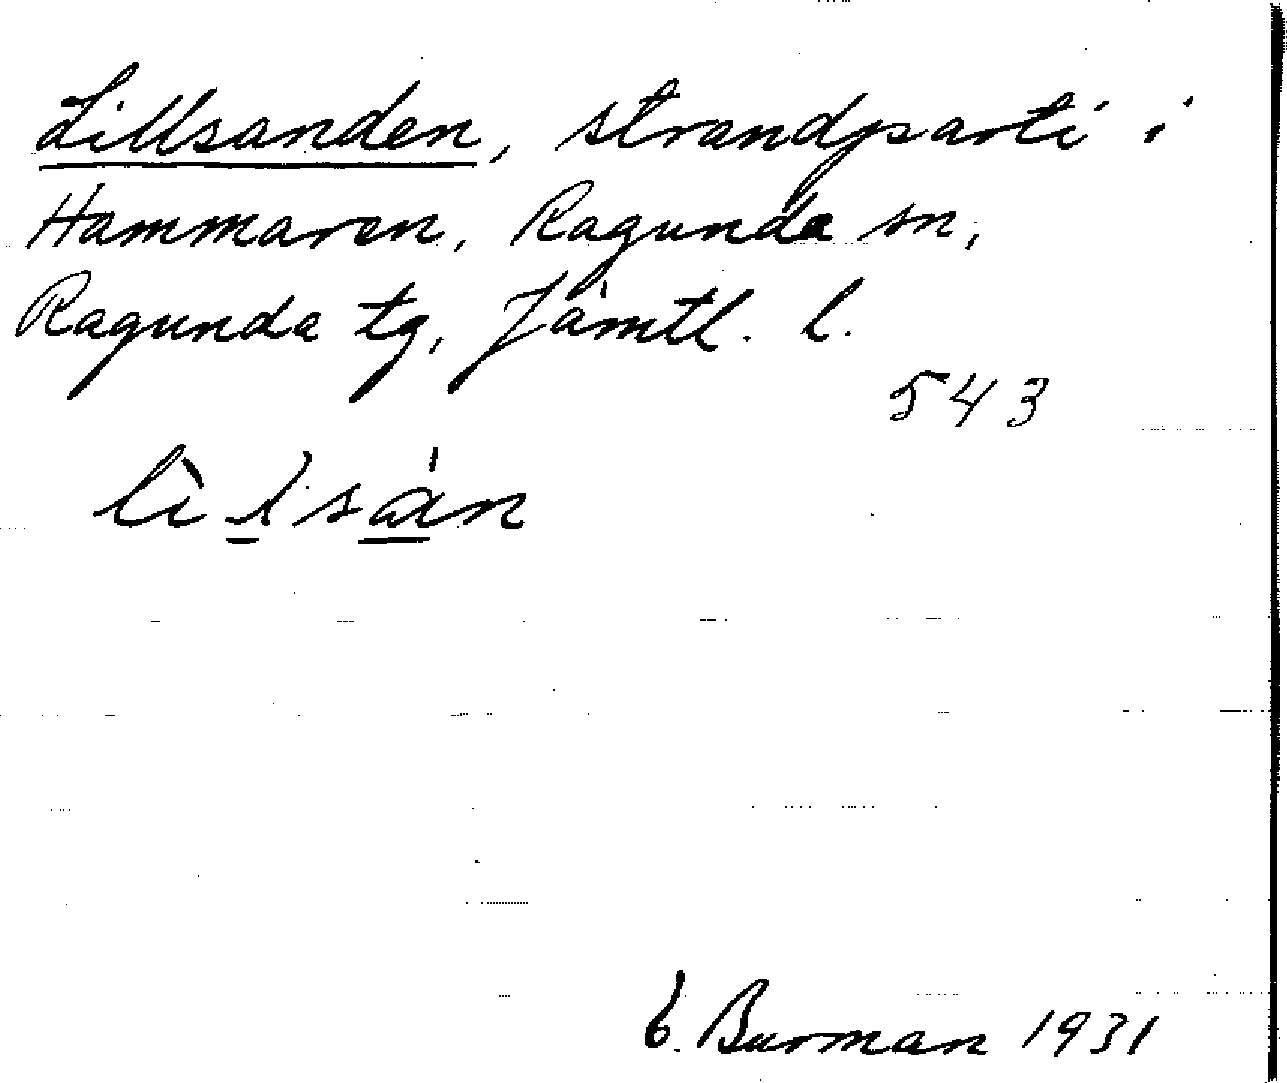 Lillsanden, strandparti i
Hammaren, Ragunda sn,
Ragunda tg, Jämtl. l.
543
Burman 1931